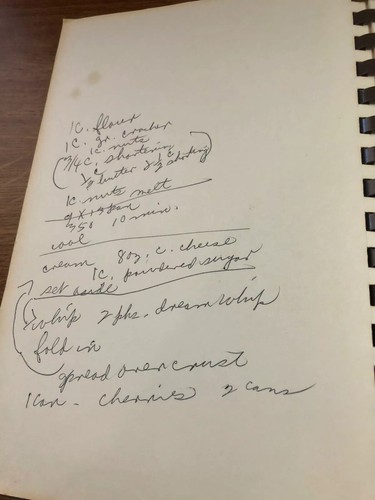 1c. flour
1c. gr. cracker
1c. nuts
3/4 c. shortening
1/2 c butter 1/2 c shorting
1c. nuts melt
9 x 13 pan
350 10 min.
cool
cream 8oz. c. cheese
1c. powdered sugar
set aside
whip 2 pks. dream whip
fold in
spread over crust
1 can - cherries 2 cans